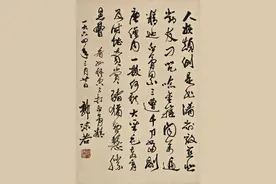 人妖颠倒是非淆对敌慈悲
对友刁咒念金箍闻万遍
精逃白骨累三遭千刀当剐
唐僧肉一拔何亏大圣毛教育
及时堪赞赏猪犹智慧胜
愚曹 看孙悟空三打白骨精
一九六四年三月廿日 郭沫若